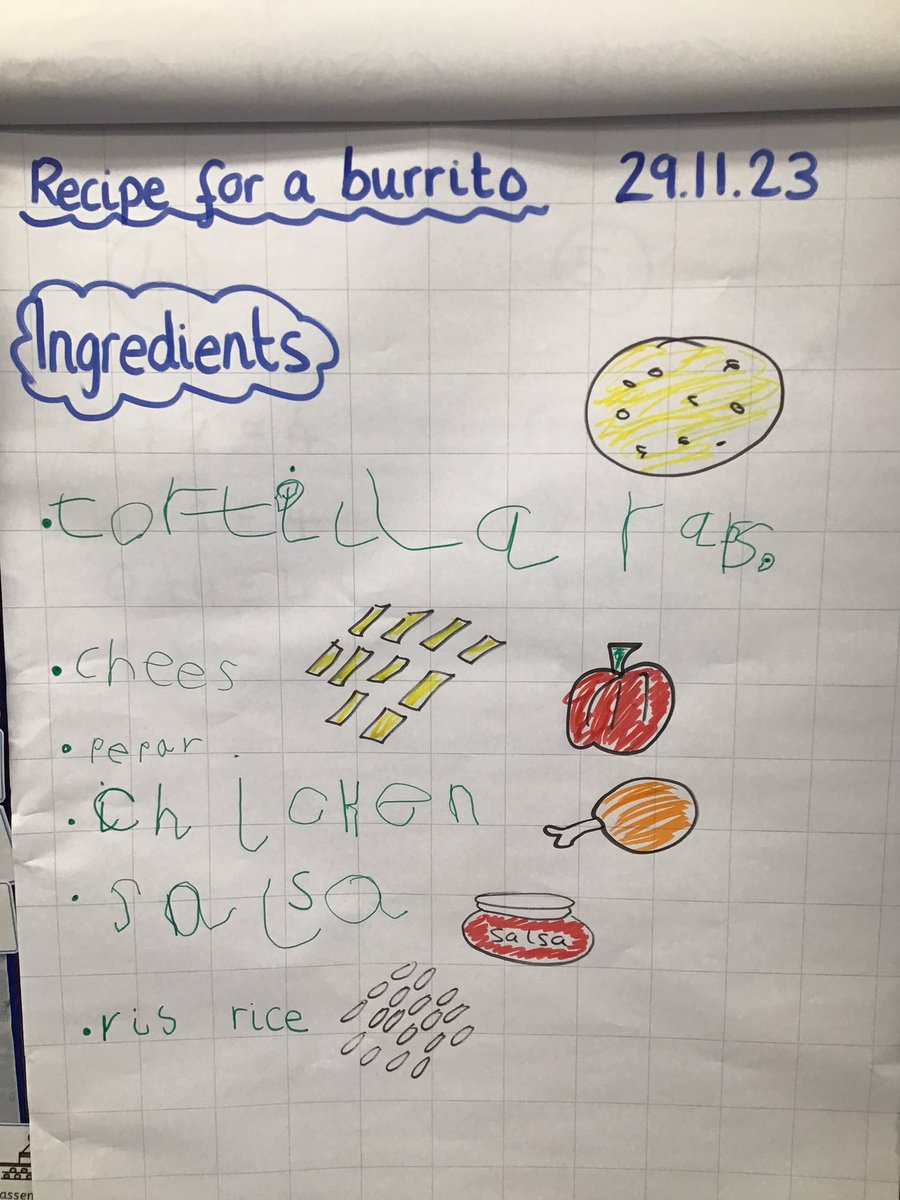 Recipe for a burrito 29.11.23
Ingredients
• tortilla raps.
• chees
• pepar
• chicken
• salsa
salsa
• ris rice
assen